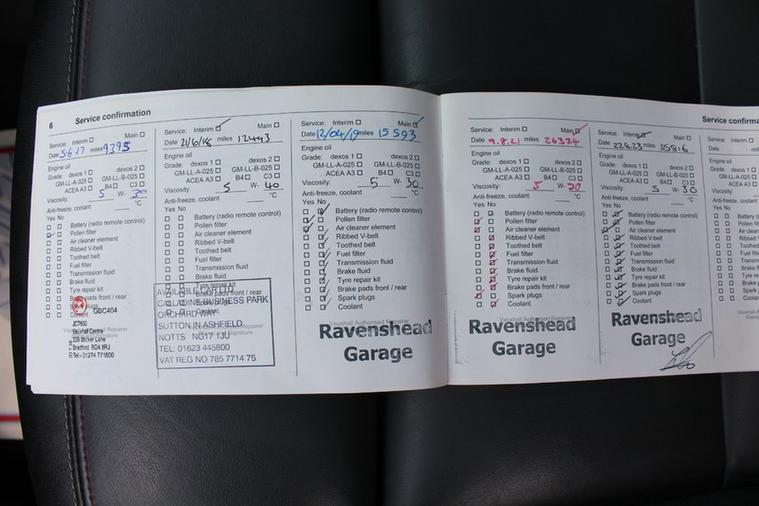 6 Service confirmation
Service: Interim Main
Date 5.6.17 miles 9295
Engine oil
Grade: dexos 1 dexos 2
GM-LL-A-025 GM-LL-B-025
ACEA A3 B4 C3
Viscosity: 5 W- 30
Anti-freeze, coolant °C
Yes No
Battery (radio remote control)
Pollen filter
Air cleaner element
Ribbed V-belt
Toothed belt
Fuel filter
Transmission fluid
Brake fluid
Tyre repair kit
Brake pads front / rear
GBC404
Coolant
JCT600
Vauxhall Centre
Bradford BD4 8RJ
Tel - 01274 771600
Service: Interim Main
Date 21/6/18 miles 12443
Engine oil
Grade: dexos 1 dexos 2
GM-LL-A-025 GM-LL-B-025
ACEA A3 B4 C3
Viscosity: 5 W- 40
Anti-freeze, coolant °C
Yes No
Battery (radio remote control)
Pollen filter
Air cleaner element
Ribbed V-belt
Toothed belt
Fuel filter
Transmission fluid
Brake fluid
Tyre repair kit
Brake pads front / rear
CALLADINE BUSINESS PARK
ORCHARD WAY
SUTTON IN ASHFIELD
NOTTS NG17 1JU
TEL: 01623 445800
VAT REG NO 785 7714 75
Service: Interim Main
Date 12/04/19 miles 15593
Engine oil
Grade: dexos 1 dexos 2
GM-LL-A-025 GM-LL-B-025
ACEA A3 B4 C3
Viscosity: 5 W- 30
Anti-freeze, coolant °C
Yes No
Battery (radio remote control)
Pollen filter
Air cleaner element
Ribbed V-belt
Toothed belt
Fuel filter
Transmission fluid
Brake fluid
Tyre repair kit
Brake pads front / rear
Spark plugs
Coolant
Vauxhall Authorised Repairer
Ravenshead
Garage
Service confirma
Service: Interim Main
Date 9.8.21 miles 26324
Engine oil
Grade: dexos 1 dexos 2
GM-LL-A-025 GM-LL-B-025
ACEA A3 B4 C3
Viscosity: 5 W- 30
Anti-freeze, coolant °C
Yes No
Battery (radio remote control)
Pollen filter
Air cleaner element
Ribbed V-belt
Toothed belt
Fuel filter
Transmission fluid
Brake fluid
Tyre repair kit
Brake pads front / rear
Spark plugs
Coolant
Vauxhall Authorised Repairer
Ravenshead
Garage
Service: Interim Main
Date miles 35816
Engine oil
Grade: dexos 1 dexos 2
GM-LL-A-025 GM-LL-B-025
ACEA A3 B4 C3
Viscosity: 5 W- 30
Anti-freeze, coolant °C
Yes No
Battery (radio remote control)
Pollen filter
Air cleaner element
Ribbed V-belt
Toothed belt
Fuel filter
Transmission fluid
Brake fluid
Tyre repair kit
Brake pads front / rear
Spark plugs
Coolant
Vauxhall Authorised Repairer
Ravenshead
Garage
Service: Interim
Date
Engine oil
Grade: dexos 1
GM-LL-A-025
ACEA A3
Viscosity:
Anti-freeze, coolant
Yes No
Battery
Pollen
Air cl
Ribbed
Tooth
Fuel
Trans
Brake
Tyre
Brake
Spark
Cool